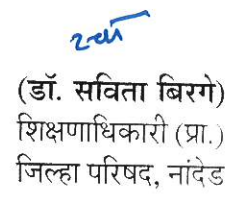 (डॉ. सविता बिरगे)
शिक्षणाधिकारी (प्रा.)
जिल्हा परिषद, नांदेड